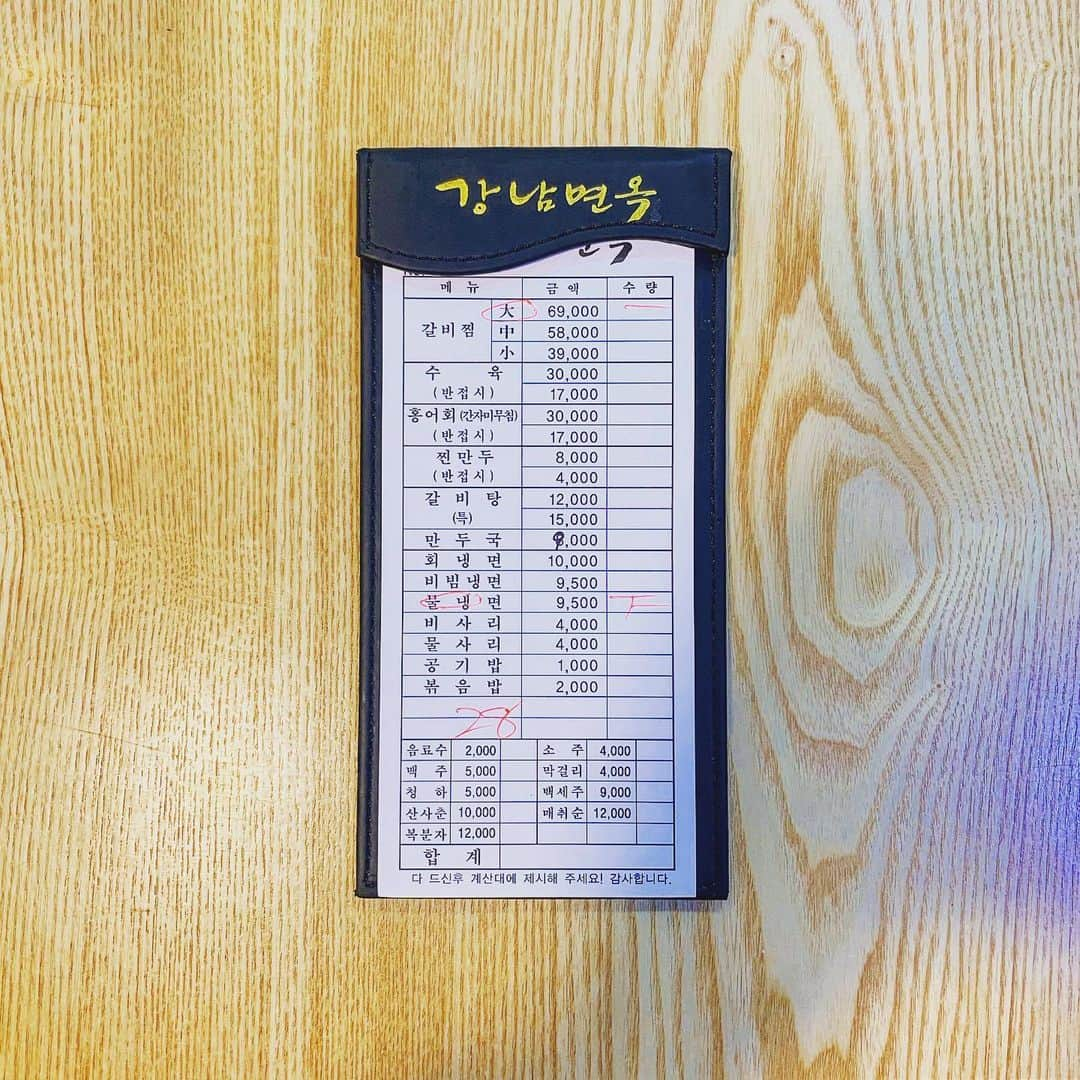 강남면옥
메뉴 금액 수량
갈비찜 大 69,000 一
中 58,000
小 39,000
수육 30,000
(반접시) 17,000
홍어회(간자미무침) 30,000
(반접시) 17,000
찐만두 8,000
(반접시) 4,000
갈비탕 12,000
(특) 15,000
만두국 9,000
회냉면 10,000
비빔냉면 9,500
물냉면 9,500 T
비사리 4,000
물사리 4,000
공기밥 1,000
볶음밥 2,000
28
음료수 2,000 소주 4,000
맥주 5,000 막걸리 4,000
청하 5,000 백세주 9,000
산사춘 10,000 매취순 12,000
복분자 12,000
합계
다 드신후 계산대에 제시해 주세요! 감사합니다.